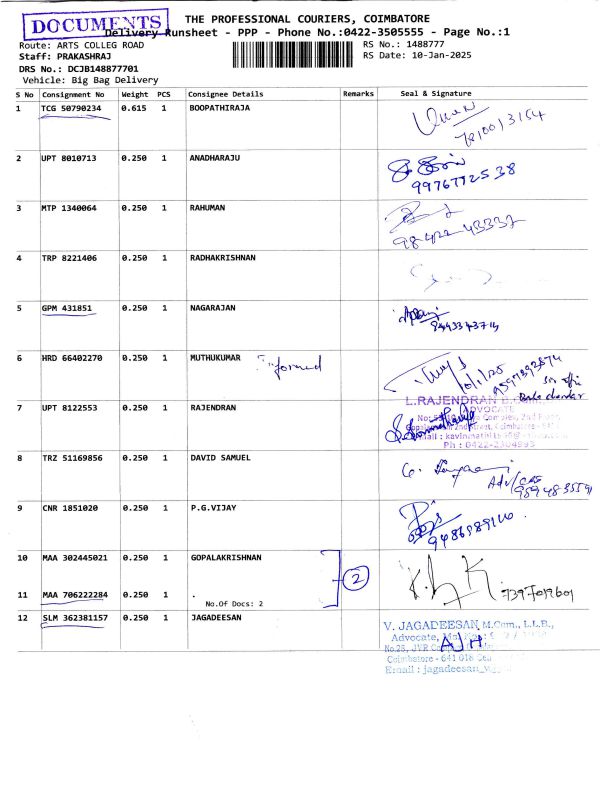 DOCUMENTS
THE PROFESSIONAL COURIERS, COIMBATORE
Delivery Runsheet - PPP - Phone No.:0422-3505555 - Page No.:1
Route: ARTS COLLEG ROAD
RS No.: 1488777
Staff: PRAKASHRAJ
RS Date: 10-Jan-2025
DRS No.: DCJB148877701
Vehicle: Big Bag Delivery
S No Consignment No Weight PCS Consignee Details Remarks Seal & Signature
1 TCG 50790234 0.615 1 BOOPATHIRAJA
7810013154
2 UPT 8010713 0.250 1 ANADHARAJU
9976772538
3 MTP 1340064 0.250 1 RAHUMAN
98422 43337
4 TRP 8221406 0.250 1 RADHAKRISHNAN
5 GPM 431851 0.250 1 NAGARAJAN
6 HRD 66402270 0.250 1 MUTHUKUMAR Informed
10/1/25
7 UPT 8122553 0.250 1 RAJENDRAN
L.RAJENDRAN
ADVOCATE
Ph : 0422-2304993
8 TRZ 51169856 0.250 1 DAVID SAMUEL
9 CNR 1851020 0.250 1 P.G.VIJAY
10 MAA 302445021 0.250 1 GOPALAKRISHNAN
2
11 MAA 706222284 0.250 1 .
No.Of Docs: 2
12 SLM 362381157 0.250 1 JAGADEESAN
V. JAGADEESAN, M.Com., L.L.B.,
Advocate,
No.25, JVR
Coimbatore - 641 018
Email : jagadeesan_